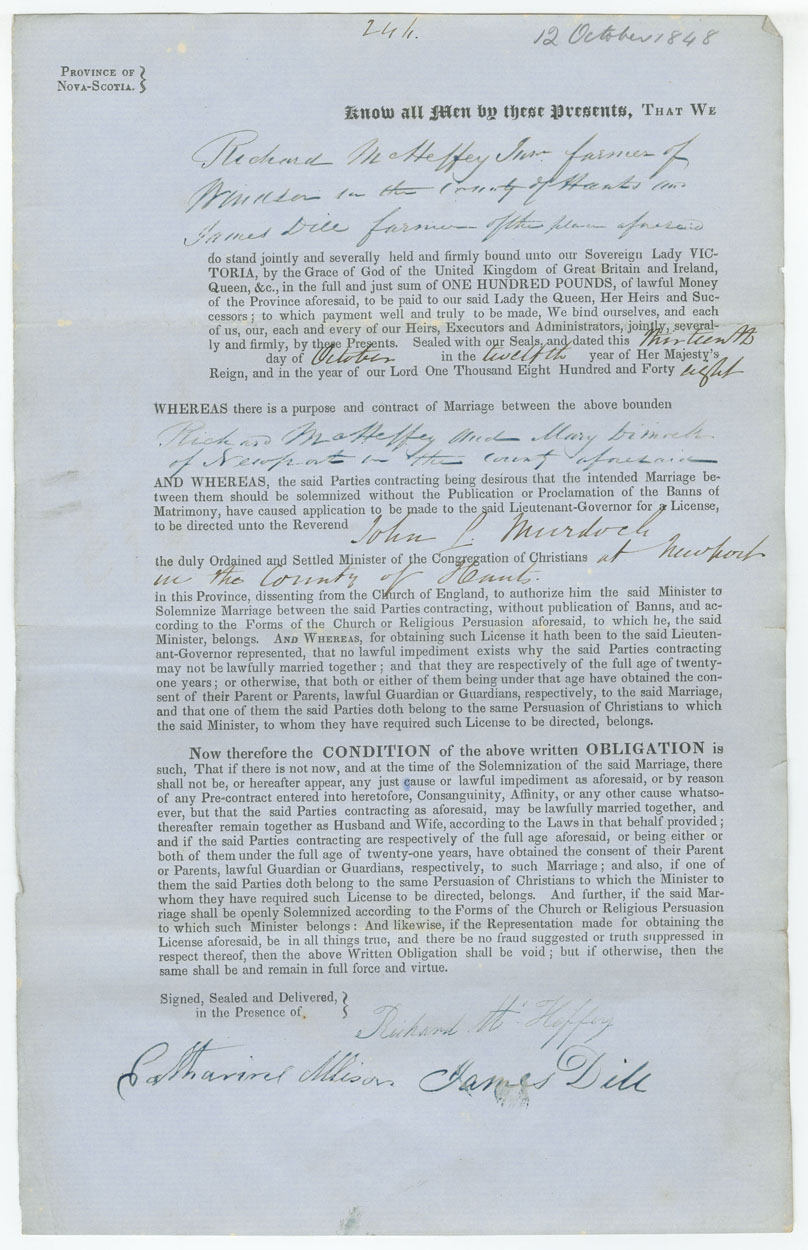 244.
12 October 1848
PROVINCE OF
NOVA-SCOTIA.
Know all Men by these Presents, THAT WE
Richard McHeffey Junr farmer of
Windsor in the County of Hants and
James Dill farmer of the place aforesaid
do stand jointly and severally held and firmly bound unto our Sovereign Lady VIC-
TORIA, by the Grace of God of the United Kingdom of Great Britain and Ireland,
Queen, &c., in the full and just sum of ONE HUNDRED POUNDS, of lawful Money
of the Province aforesaid, to be paid to our said Lady the Queen, Her Heirs and Suc-
cessors; to which payment well and truly to be made, We bind ourselves, and each
of us, our, each and every of our Heirs, Executors and Administrators, jointly, several-
ly and firmly, by these Presents. Sealed with our Seals, and dated this thirteenth
day of October in the twelfth year of Her Majesty's
Reign, and in the year of our Lord One Thousand Eight Hundred and Forty eight
WHEREAS there is a purpose and contract of Marriage between the above bounden
Richard McHeffey and Mary Dimock
of Newport in the County aforesaid
AND WHEREAS, the said Parties contracting being desirous that the intended Marriage be-
tween them should be solemnized without the Publication or Proclamation of the Banns of
Matrimony, have caused application to be made to the said Lieutenant-Governor for a License,
to be directed unto the Reverend John L. Murdoch
the duly Ordained and Settled Minister of the Congregation of Christians at Newport
in the County of Hants.
in this Province, dissenting from the Church of England, to authorize him the said Minister to
Solemnize Marriage between the said Parties contracting, without publication of Banns, and ac-
cording to the Forms of the Church or Religious Persuasion aforesaid, to which he, the said
Minister, belongs. AND WHEREAS, for obtaining such License it hath been to the said Lieuten-
ant-Governor represented, that no lawful impediment exists why the said Parties contracting
may not be lawfully married together; and that they are respectively of the full age of twenty-
one years; or otherwise, that both or either of them being under that age have obtained the con-
sent of their Parent or Parents, lawful Guardian or Guardians, respectively, to the said Marriage,
and that one of them the said Parties doth belong to the same Persuasion of Christians to which
the said Minister, to whom they have required such License to be directed, belongs.
Now therefore the CONDITION of the above written OBLIGATION is
such, That if there is not now, and at the time of the Solemnization of the said Marriage, there
shall not be, or hereafter appear, any just cause or lawful impediment as aforesaid, or by reason
of any Pre-contract entered into heretofore, Consanguinity, Affinity, or any other cause whatso-
ever, but that the said Parties contracting as aforesaid, may be lawfully married together, and
thereafter remain together as Husband and Wife, according to the Laws in that behalf provided;
and if the said Parties contracting are respectively of the full age aforesaid, or being either or
both of them under the full age of twenty-one years, have obtained the consent of their Parent
or Parents, lawful Guardian or Guardians, respectively, to such Marriage; and also, if one of
them the said Parties doth belong to the same Persuasion of Christians to which the Minister to
whom they have required such License to be directed, belongs. And further, if the said Mar-
riage shall be openly Solemnized according to the Forms of the Church or Religious Persuasion
to which such Minister belongs: And likewise, if the Representation made for obtaining the
License aforesaid, be in all things true, and there be no fraud suggested or truth suppressed in
respect thereof, then the above Written Obligation shall be void; but if otherwise, then the
same shall be and remain in full force and virtue.
Signed, Sealed and Delivered,
in the Presence of
Richard McHeffey
Catharine Allison James Dill